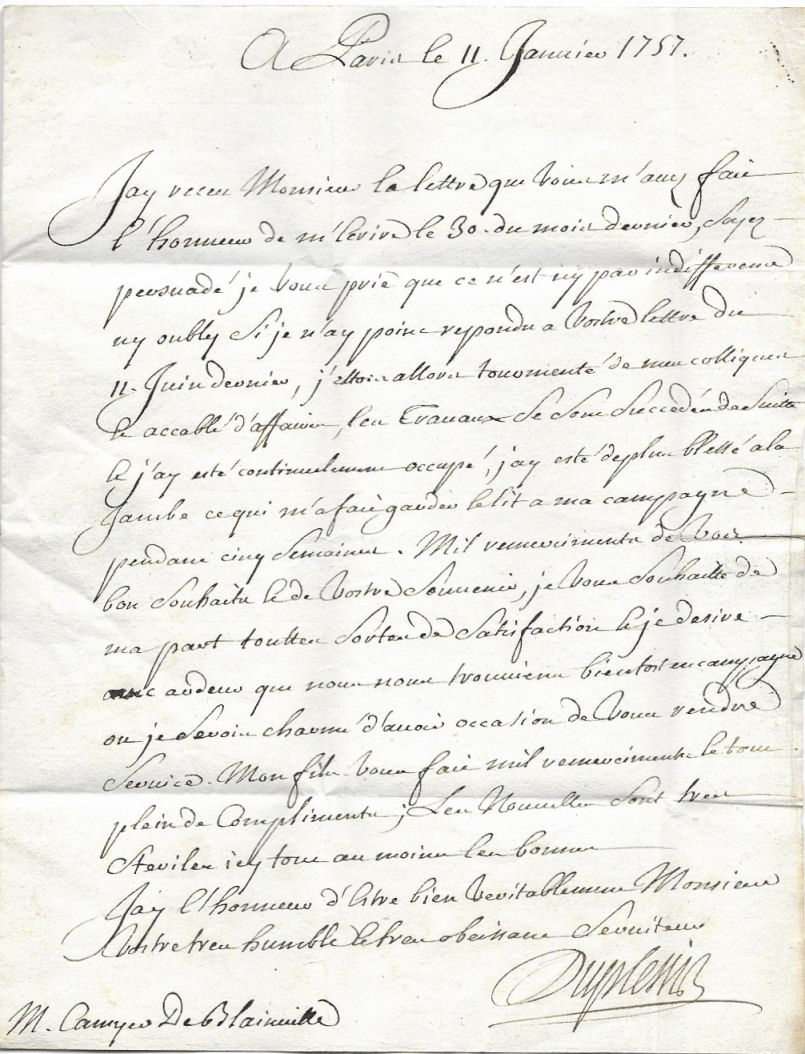 A Paris le 11. Janvier 1757.
J'ay receu Monsieur la lettre que vous m'avez fait
l'honneur de m'ecrire le 30. du mois dernier, soyez
persuadé je vous prie que ce n'est ny par indifference
ny oubly si je n'ay point repondu a vostre lettre du
11. Juin dernier, j'estois allors tourmenté de mes colliques
et accablé d'affaires, les Travaux se sont succedés de suitte
et j'ay esté continuelement occupé, j'ay esté de plus blessé a la
jambe ce qui m'a fait garder le lit a ma campagne
pendant cinq semaines. Mil remerciments de vos
bon souhaits et de vostre souvenir, je vous souhaitte de
ma part touttes sortes de satisfaction et je desire
avec ardeur que nous nous trouvions bientost en campagne
ou je serois charmé d'avoir occasion de vous rendre
service. Mon fils vous fait mil remerciments le tout
plein de Compliments; Les Nouvelles sont tres
steriles icy tout au moins les bonnes
J'ay l'honneur d'estre bien veritablement Monsieur
Vostre tres humble et tres obeissant serviteur
Duplessis
M. Camyer De Blainville